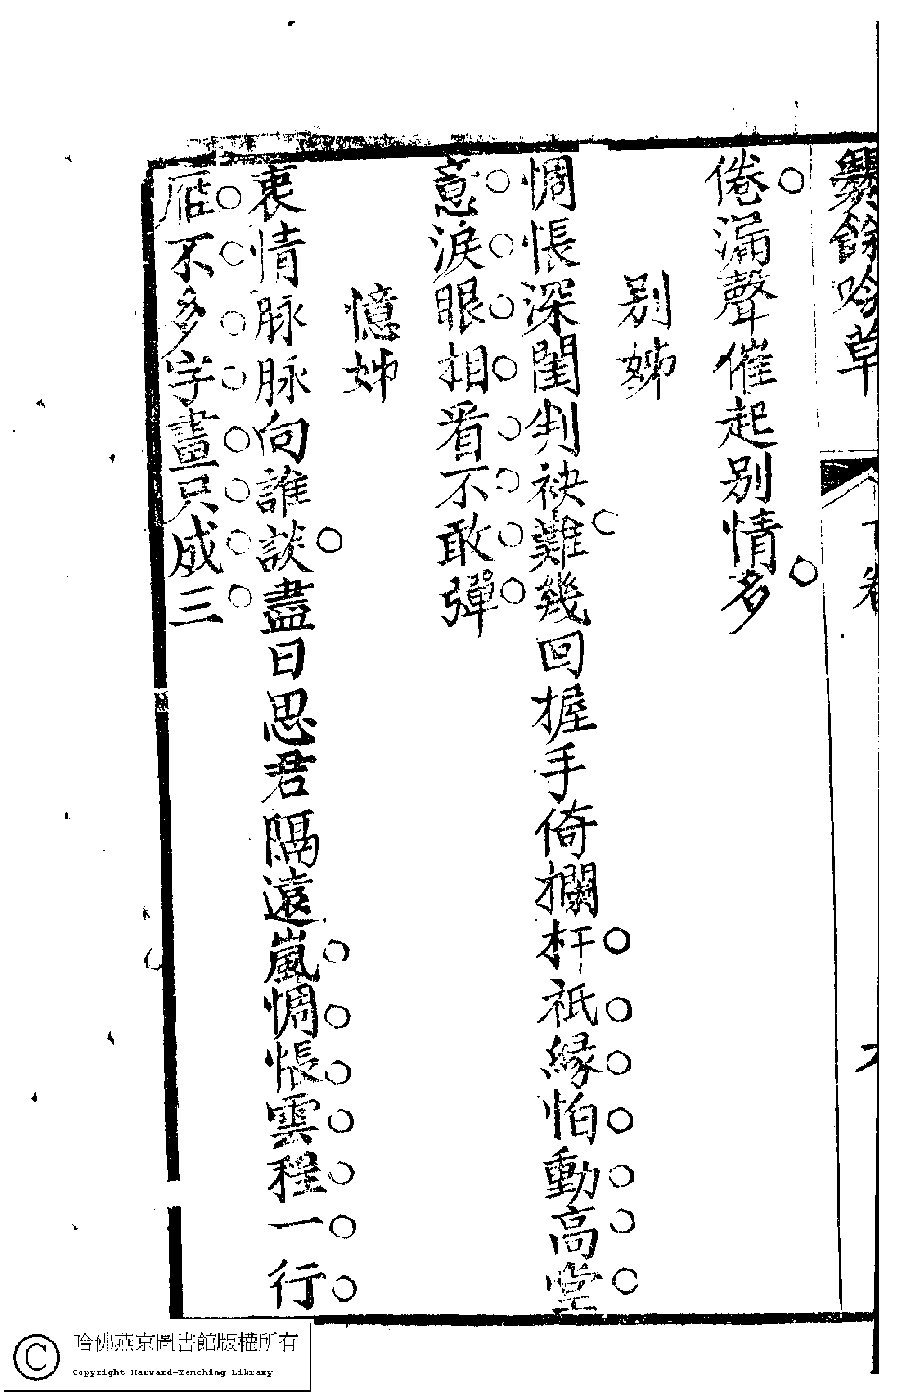 爨餘吟草
下卷
倦漏聲催起別情多
別姊
惆悵深閨判袂難幾回握手倚欄杆祇緣怕動高堂
意淚眼相看不敢彈
憶姊
衷情脉脉向誰談盡日思君隔遠嵐惆悵雲程一行
雁不多字畫只成三
哈佛燕京圖書館版權所有
Copyright Harvard-Yenching Library